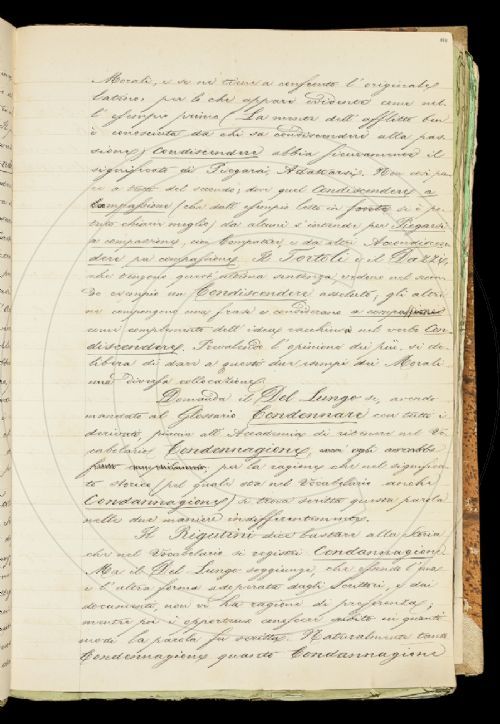 Morali, e se ne tiene a confronto l'originale
latino, per lo che appare evidente come nel-
l'esempio primo (La mente dell'afflitto ben
è conosciuta da chi sa condiscendere alla pas-
sione) Condiscendere abbia sicuramente il
significato di Piegarsi Adattarsi. Non così pa-
re a tutti del secondo, dove quel Condiscendere a
Compassione (che dall'esempio letto in fonte si è po-
tuto chiarir meglio) da alcuni s'intende per Piegarsi
a compassione, un Compatire, e da altri Accondiscen-
dere per compassione. Il Tortoli e il Dazzi,
che tengono quest'ultima sentenza, vedono nel secon-
do esempio un Condiscendere assoluto; gli altri
ne compongono una frase e considerano a compassione
come complemento dell'idea racchiusa nel verbo Con-
discendere. Prevalendo l'opinione dei più, si de-
libera di dare a questi due esempi dei Morali
una diversa collocazione.
Domanda il Del Lungo se, avendo
mandato al Glossario Condennare con tutti i
derivati, piaccia all'Accademia di ritenere nel Vo-
cabolario Condennagione, per la ragione che nel significa-
to storico (pel quale sta nel Vocabolario anche
Condannagione) si trova scritta questa parola
nelle due maniere indifferentemente.
Il Rigutini dice bastare alla storia
che nel Vocabolario si registri Condannagione.
Ma il Del Lungo soggiunge, che essendo l'una
e l'altra forma adoperata dagli Scrittori, e dai
documenti, non vi ha ragione di preferenza;
mentre poi è opportuno conoscere subito in quanti
modi la parola fu scritta. Naturalmente tanto
Condennagione quanto Condannagione